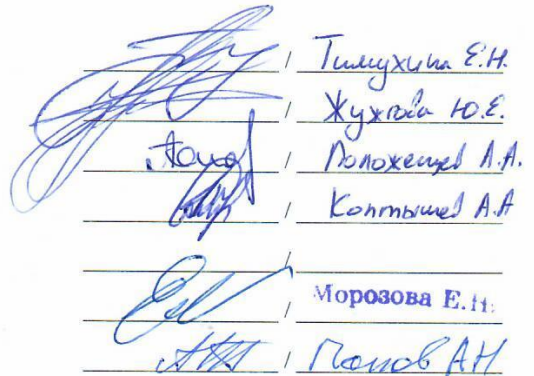 / Тимухина Е.Н.
/ Жужгова Ю.Е.
/ Положенцев А.А.
/ Коптышев А.А
/
/ Морозова Е.Н.
/ Попов АН